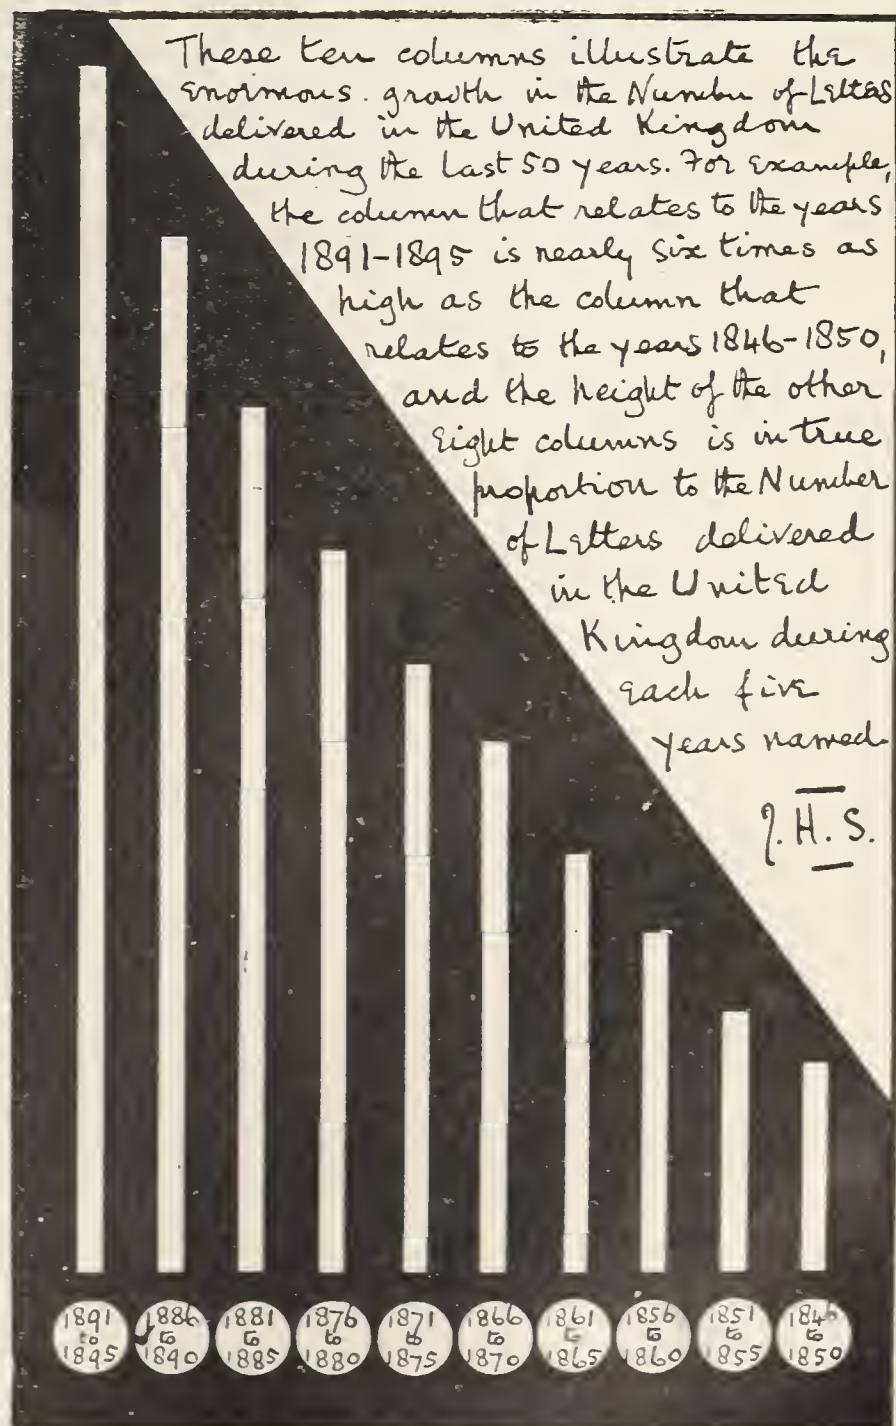 These ten columns illustrate the
enormous growth in the Number of Letters
delivered in the United Kingdom
during the last 50 years. For Example,
the column that relates to the years
1891-1895 is nearly six times as
high as the column that
relates to the years 1846-1850,
and the height of the other
Eight columns is in true
proportion to the Number
of Letters delivered
in the United
Kingdom during
Each five
years named.
J. H. S.
1891 to 1895
1886 to 1890
1881 to 1885
1876 to 1880
1871 to 1875
1866 to 1870
1861 to 1865
1856 to 1860
1851 to 1855
1846 to 1850